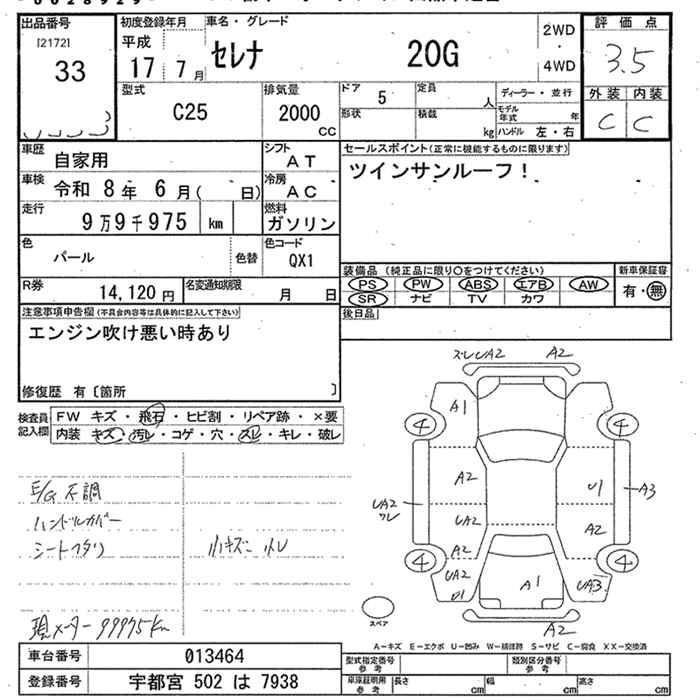 出品番号
[2172]
33
初度登録年月
平成
17 7月
車名・グレード
セレナ 20G
2WD
・
4WD
評価点
3.5
外装 内装
C C
型式
C25
排気量
2000
CC
ドア 5
定員
人
形状
積載
kg
ディーラー・並行
モデル年式 年
ハンドル 左・右
車歴 自家用
シフト AT
車検 令和 8年 6月( 日)
冷房 AC
走行 9万9千975 km
燃料 ガソリン
色 パール
色替
色コード QX1
R券 14,120円
名変通知期限 月 日
セールスポイント(正常に機能するものに限ります)
ツインサンルーフ!
装備品(純正品に限り○をつけてください)
PS PW ABS エアB AW
SR ナビ TV カワ
新車保証書
有・無
後日品
注意事項申告欄(不具合内容等は具体的に記入して下さい)
エンジン吹け悪い時あり
修復歴 有〔箇所 〕
検査員記入欄
FW キズ・飛石・ヒビ割・リペア跡・×要
内装 キズ・汚レ・コゲ・穴・スレ・キレ・破レ
E/G不調
ハンドルカバー
シートフタリ
小キズ・小レ
現メーター99975km
ズレUA2 A2
A1
4 4
A2 U1 A3
UA2
ワレ
UA2 A2
A2
4 4
UA2 A1 UA3
U1
A2
スペア
A-キズ E-エクボ U-凹み W-補修跡 S-サビ C-腐食 XX-交換済
車台番号 013464
登録番号 宇都宮 502 は 7938
型式指定番号
参考
類別区分番号
参考
車庫証明用
参考
長さ cm 幅 cm 高さ cm